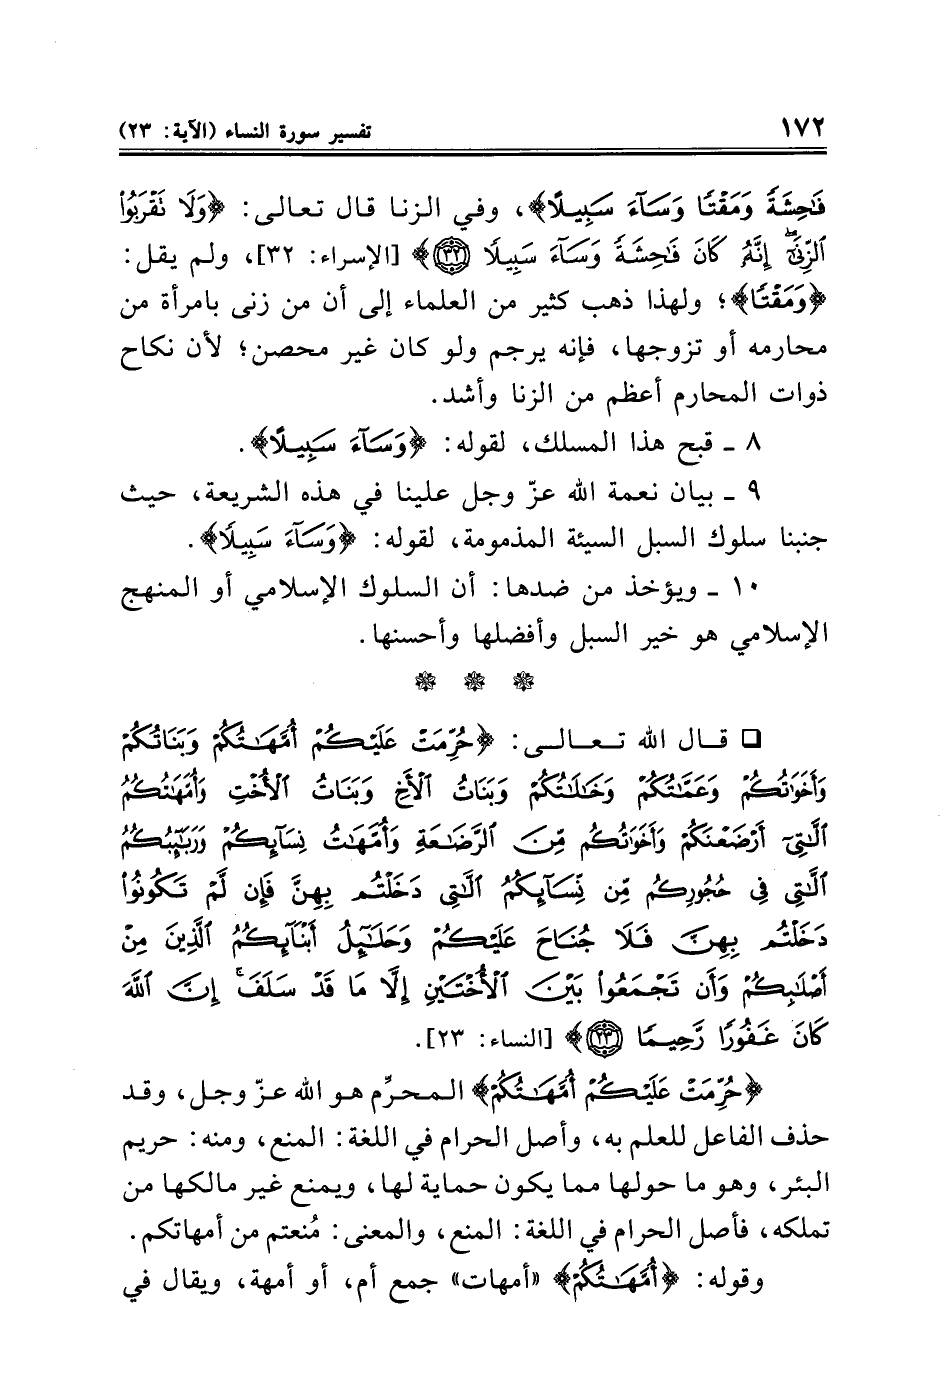 ١٧٢ تفسير سورة النساء (الآية: ٢٣)
فَٰحِشَةً وَمَقْتًا وَسَآءَ سَبِيلًا﴾، وفي الزنا قال تعالى: ﴿وَلَا تَقْرَبُوا۟
ٱلزِّنَىٰٓ ۖ إِنَّهُۥ كَانَ فَٰحِشَةً وَسَآءَ سَبِيلًا ٣٢﴾ [الإسراء: ٣٢]، ولم يقل:
﴿وَمَقْتًا﴾؛ ولهذا ذهب كثير من العلماء إلى أن من زنى بامرأة من
محارمه أو تزوجها، فإنه يرجم ولو كان غير محصن؛ لأن نكاح
ذوات المحارم أعظم من الزنا وأشد.
٨ ـ قبح هذا المسلك، لقوله: ﴿وَسَآءَ سَبِيلًا﴾.
٩ ـ بيان نعمة الله عزّ وجل علينا في هذه الشريعة، حيث
جنبنا سلوك السبل السيئة المذمومة، لقوله: ﴿وَسَآءَ سَبِيلًا﴾.
١٠ ـ ويؤخذ من ضدها: أن السلوك الإسلامي أو المنهج
الإسلامي هو خير السبل وأفضلها وأحسنها.
❁ ❁ ❁
❑ قال الله تعالى: ﴿حُرِّمَتْ عَلَيْكُمْ أُمَّهَٰتُكُمْ وَبَنَاتُكُمْ
وَأَخَوَٰتُكُمْ وَعَمَّٰتُكُمْ وَخَٰلَٰتُكُمْ وَبَنَاتُ ٱلْأَخِ وَبَنَاتُ ٱلْأُخْتِ وَأُمَّهَٰتُكُمُ
ٱلَّٰتِىٓ أَرْضَعْنَكُمْ وَأَخَوَٰتُكُم مِّنَ ٱلرَّضَٰعَةِ وَأُمَّهَٰتُ نِسَآئِكُمْ وَرَبَٰٓئِبُكُمُ
ٱلَّٰتِى فِى حُجُورِكُم مِّن نِّسَآئِكُمُ ٱلَّٰتِى دَخَلْتُم بِهِنَّ فَإِن لَّمْ تَكُونُوا۟
دَخَلْتُم بِهِنَّ فَلَا جُنَاحَ عَلَيْكُمْ وَحَلَٰٓئِلُ أَبْنَآئِكُمُ ٱلَّذِينَ مِنْ
أَصْلَٰبِكُمْ وَأَن تَجْمَعُوا۟ بَيْنَ ٱلْأُخْتَيْنِ إِلَّا مَا قَدْ سَلَفَ ۗ إِنَّ ٱللَّهَ
كَانَ غَفُورًا رَّحِيمًا ٢٣﴾ [النساء: ٢٣].
﴿حُرِّمَتْ عَلَيْكُمْ أُمَّهَٰتُكُمْ﴾ المحرِّم هو الله عزّ وجل، وقد
حذف الفاعل للعلم به، وأصل الحرام في اللغة: المنع، ومنه: حريم
البئر، وهو ما حولها مما يكون حماية لها، ويمنع غير مالكها من
تملكه، فأصل الحرام في اللغة: المنع، والمعنى: مُنعتم من أمهاتكم.
وقوله: ﴿أُمَّهَٰتُكُمْ﴾ «أمهات» جمع أم، أو أمهة، ويقال في